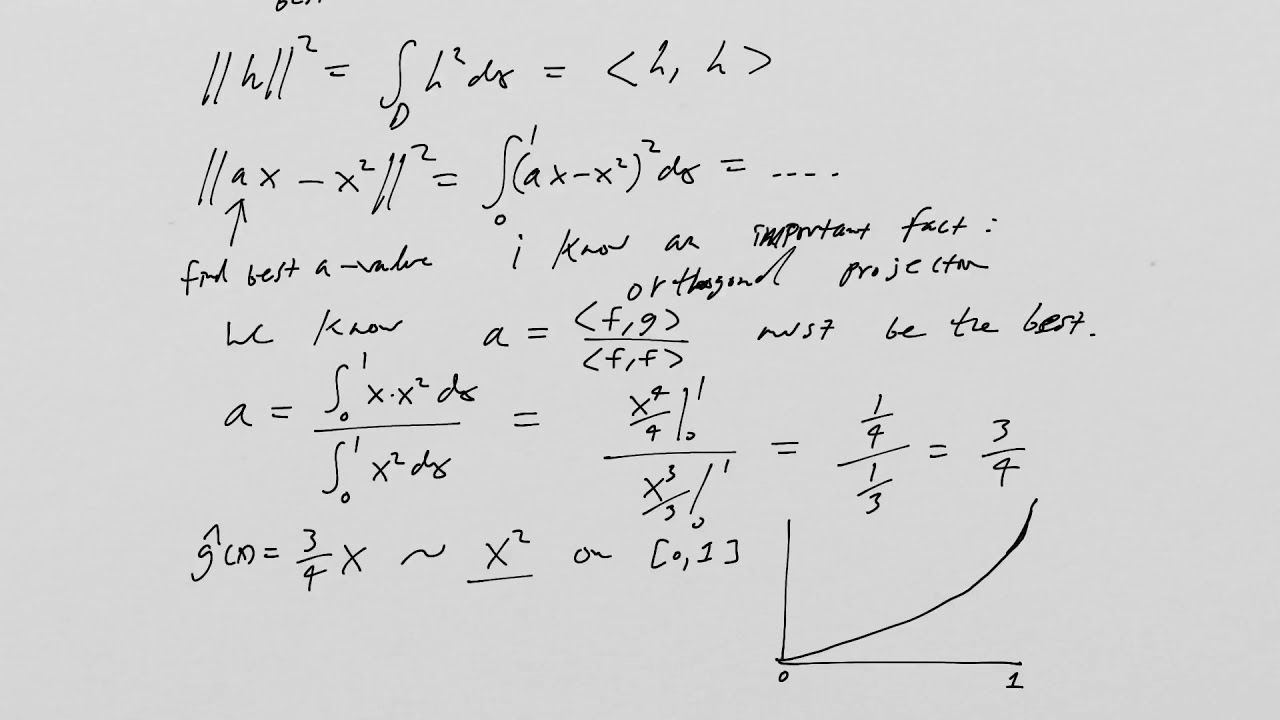 ||h||² = ∫_D h² dx = <h, h>
||ax − x²||² = ∫₀¹ (ax − x²)² dx = ....
↑
find best a-value i know an important fact:
orthogonal projection
we know a = <f,g> / <f,f> must be the best.
a = ∫₀¹ x·x² dx / ∫₀¹ x² dx = (x⁴/4 |₀¹) / (x³/3 |₀¹) = (1/4) / (1/3) = 3/4
ĝ(x) = 3/4 x ~ x² on [0,1]
0 1